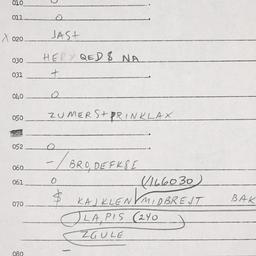 010 o
011 o
020 JAST
030 HER QED8 NA
031 +
040 o
050 ZUMERST PRINKLAX
052 o
060 -/BRO,DEFKSE
061 o (/166030)
070 $ KAJKLEN MIDBREJT BAK
LA,PIS (240
ZGULE
080 -